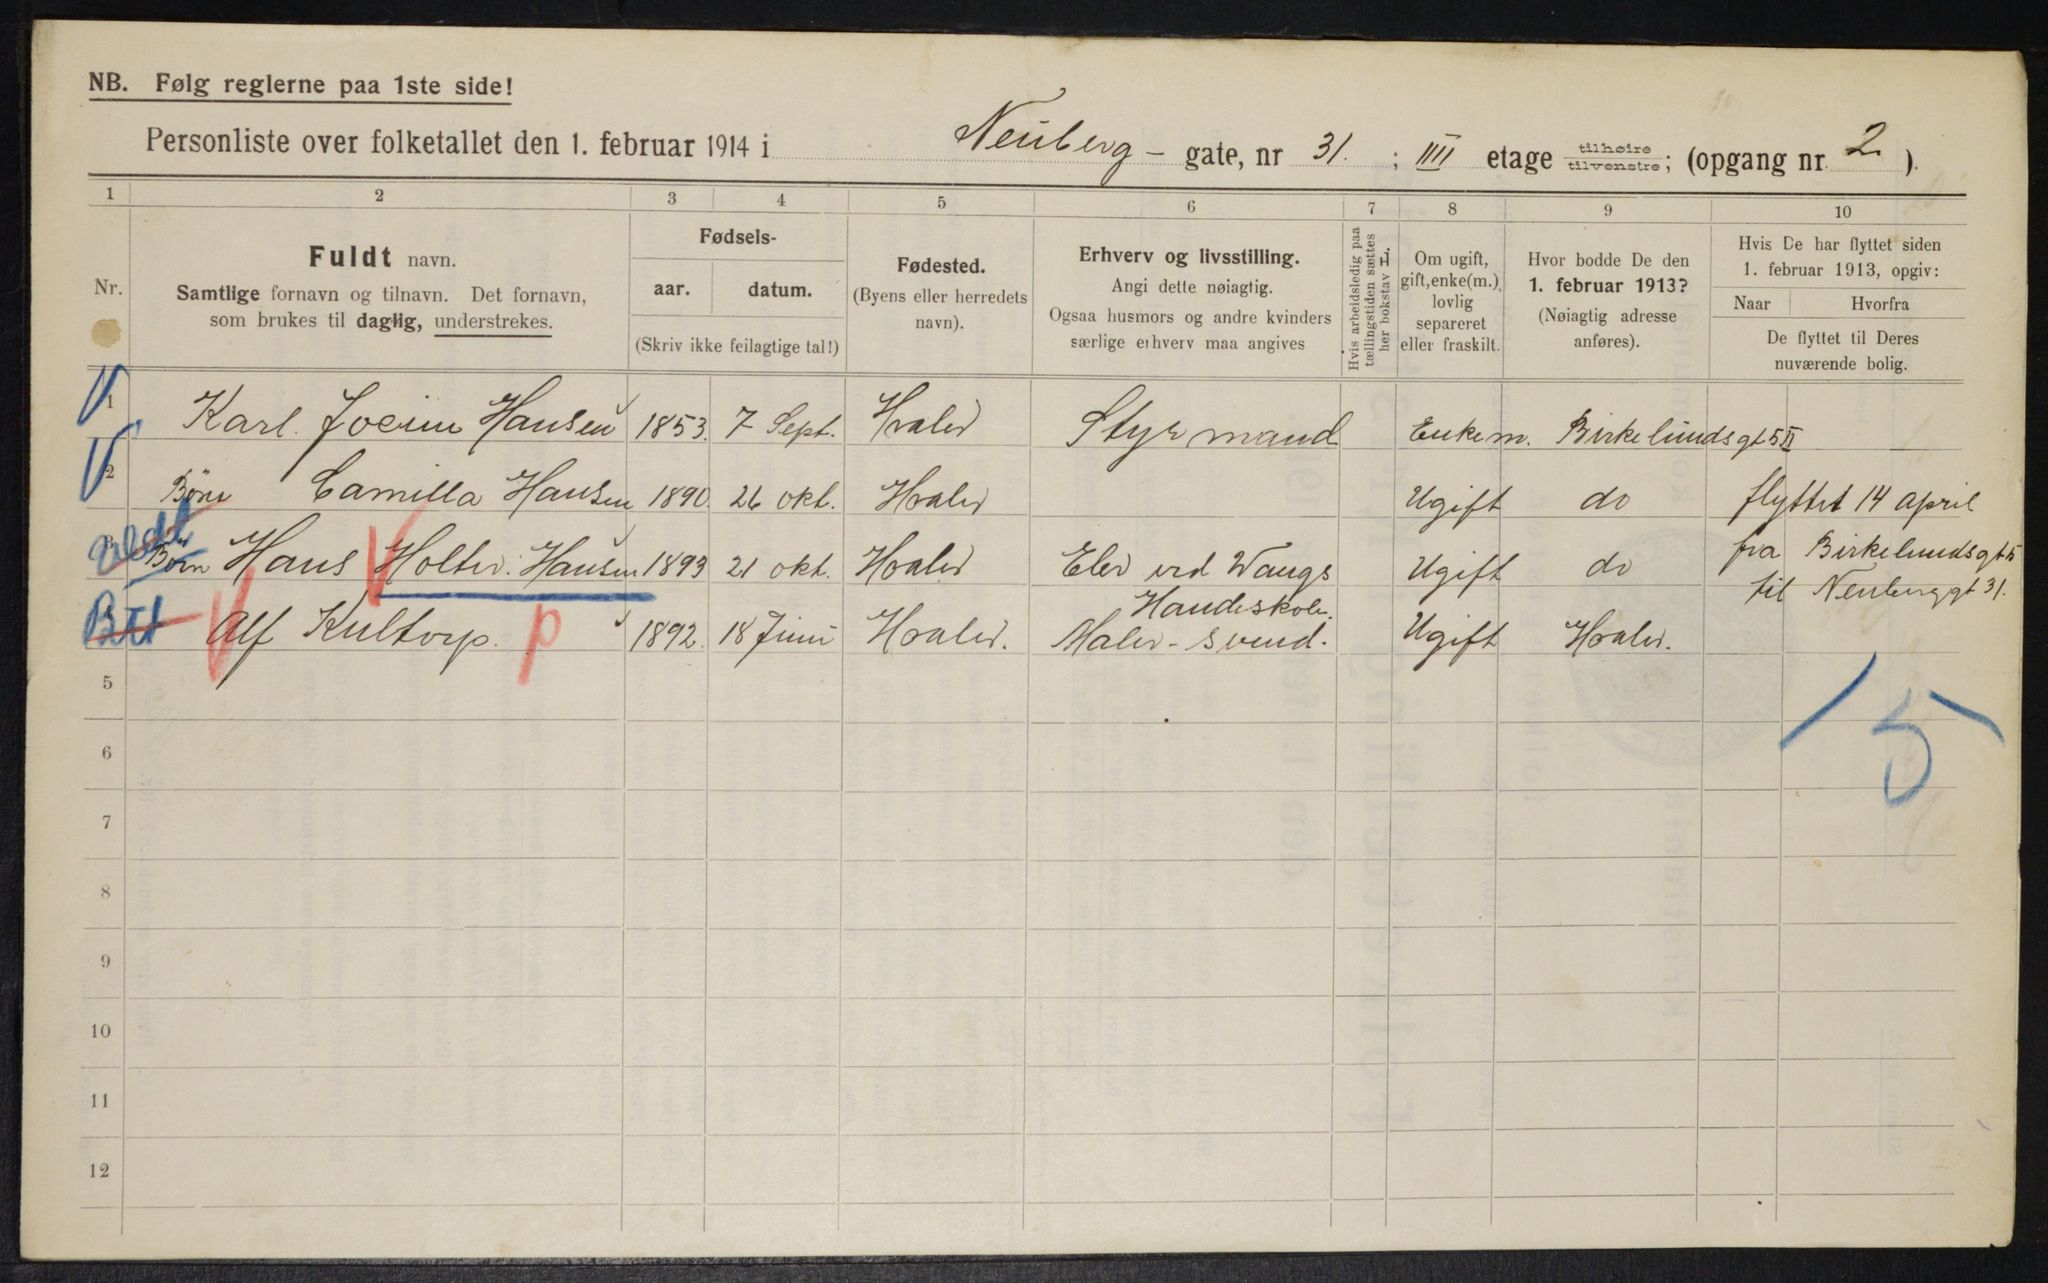 NB. Følg reglerne paa 1ste side!
Personliste over folketallet den 1. februar 1914 i Neuberg - gate, nr 31. ; IIII etage tilhøire tilvenstre; (opgang nr. 2 ).
1 2 3 4 5 6 7 8 9 10
Nr.
Fuldt navn.
Samtlige fornavn og tilnavn. Det fornavn,
som brukes til daglig, understrekes.
Fødsels-
aar. datum.
(Skriv ikke feilagtige tal!)
Fødested.
(Byens eller herredets
navn).
Erhverv og livsstilling.
Angi dette nøiagtig.
Ogsaa husmors og andre kvinders
særlige erhverv maa angives
Hvis arbeidsledig paa
tællingstiden sættes
her bokstav L.
Om ugift,
gift, enke(m.),
lovlig
separeret
eller fraskilt.
Hvor bodde De den
1. februar 1913?
(Nøiagtig adresse
anføres).
Hvis De har flyttet siden
1. februar 1913, opgiv:
Naar Hvorfra
De flyttet til Deres
nuværende bolig.
1 Karl. Joeim Hansen 1853. 7 Sept. Hvaler Styrmand Enkem. Birkelundsgt 5 II
2 Børn Camilla Hansen 1890. 26 okt. Hvaler Ugift do flyttet 14 april
3 Børn Hans Holter. Hansen 1893 21 okt. Hvaler Elev ved Wangs Ugift do fra Birkelundsgt 5
Handeskole. til Neuberggt 31.
Alf Kultorp. p 1892. 18 Juni Hvaler. Maler-svend. Ugift Hvaler.
5
5
6
7
8
9
10
11
12